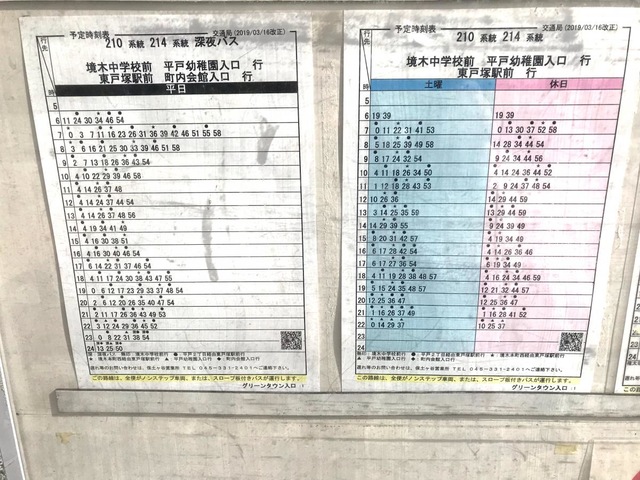 予定時刻表 交通局(2019/03/16改正)
210 系統 214 系統 深夜バス
行先
境木中学校前 平戸幼稚園入口 行
東戸塚駅前 町内会館入口 行
時 平日
5
6 11 24 30 34 46 54
7 0 3 7 11 16 23 26 31 36 39 42 46 51 55 58
8 3 6 8 16 21 25 30 33 39 45 51 58
9 2 7 13 18 26 36 43 54
10 4 10 22 29 39 46 58
11 4 14 26 37 48
12 4 14 24 37 44 54
13 4 14 26 37 48 56
14 4 19 34 41 49
15 4 16 30 38 51
16 4 16 30 40 46 54
17 6 14 22 31 37 46 54
18 4 11 17 24 30 38 43 47 55
19 0 6 12 17 23 29 33 37 48 54
20 2 6 12 20 26 35 40 47 54
21 2 6 11 21 26 36 43 49 53
22 3 12 24 29 36 45 52
23 0 8 22 31 38 54
24 13 25 50
この路線は、全便がノンステップ車両、または、スロープ板付きバスが運行します。
グリーンタウン入口
予定時刻表 交通局(2019/03/16改正)
210 系統 214 系統
行先
境木中学校前 平戸幼稚園入口 行
東戸塚駅前 行
時 土曜 休日
5
6 19 39 19 39
7 0 11 22 31 41 53 0 13 30 37 52 58
8 5 18 25 39 49 58 14 28 34 44 54
9 8 17 24 32 54 9 24 34 44 56
10 4 11 18 26 34 50 4 14 24 36 44 52
11 1 12 18 28 43 53 2 9 24 37 48 54
12 10 26 36 14 29 44 59
13 3 14 25 35 59 13 29 44 59
14 9 24 39 49
15 8 20 31 42 57 4 19 34 49
16 6 17 28 42 54 4 14 26 36 46
17 6 17 27 36 54 6 19 34 49
18 4 11 19 28 38 48 57 4 16 24 34 46 59
19 5 15 24 35 48 57 12 21 32 44 57
20 12 25 36 47 12 25 36 47
21 1 16 26 37 49 1 16 28 41 52
22 0 14 29 37 10 25 37
23
24
この路線は、全便がノンステップ車両、または、スロープ板付きバスが運行します。
グリーンタウン入口